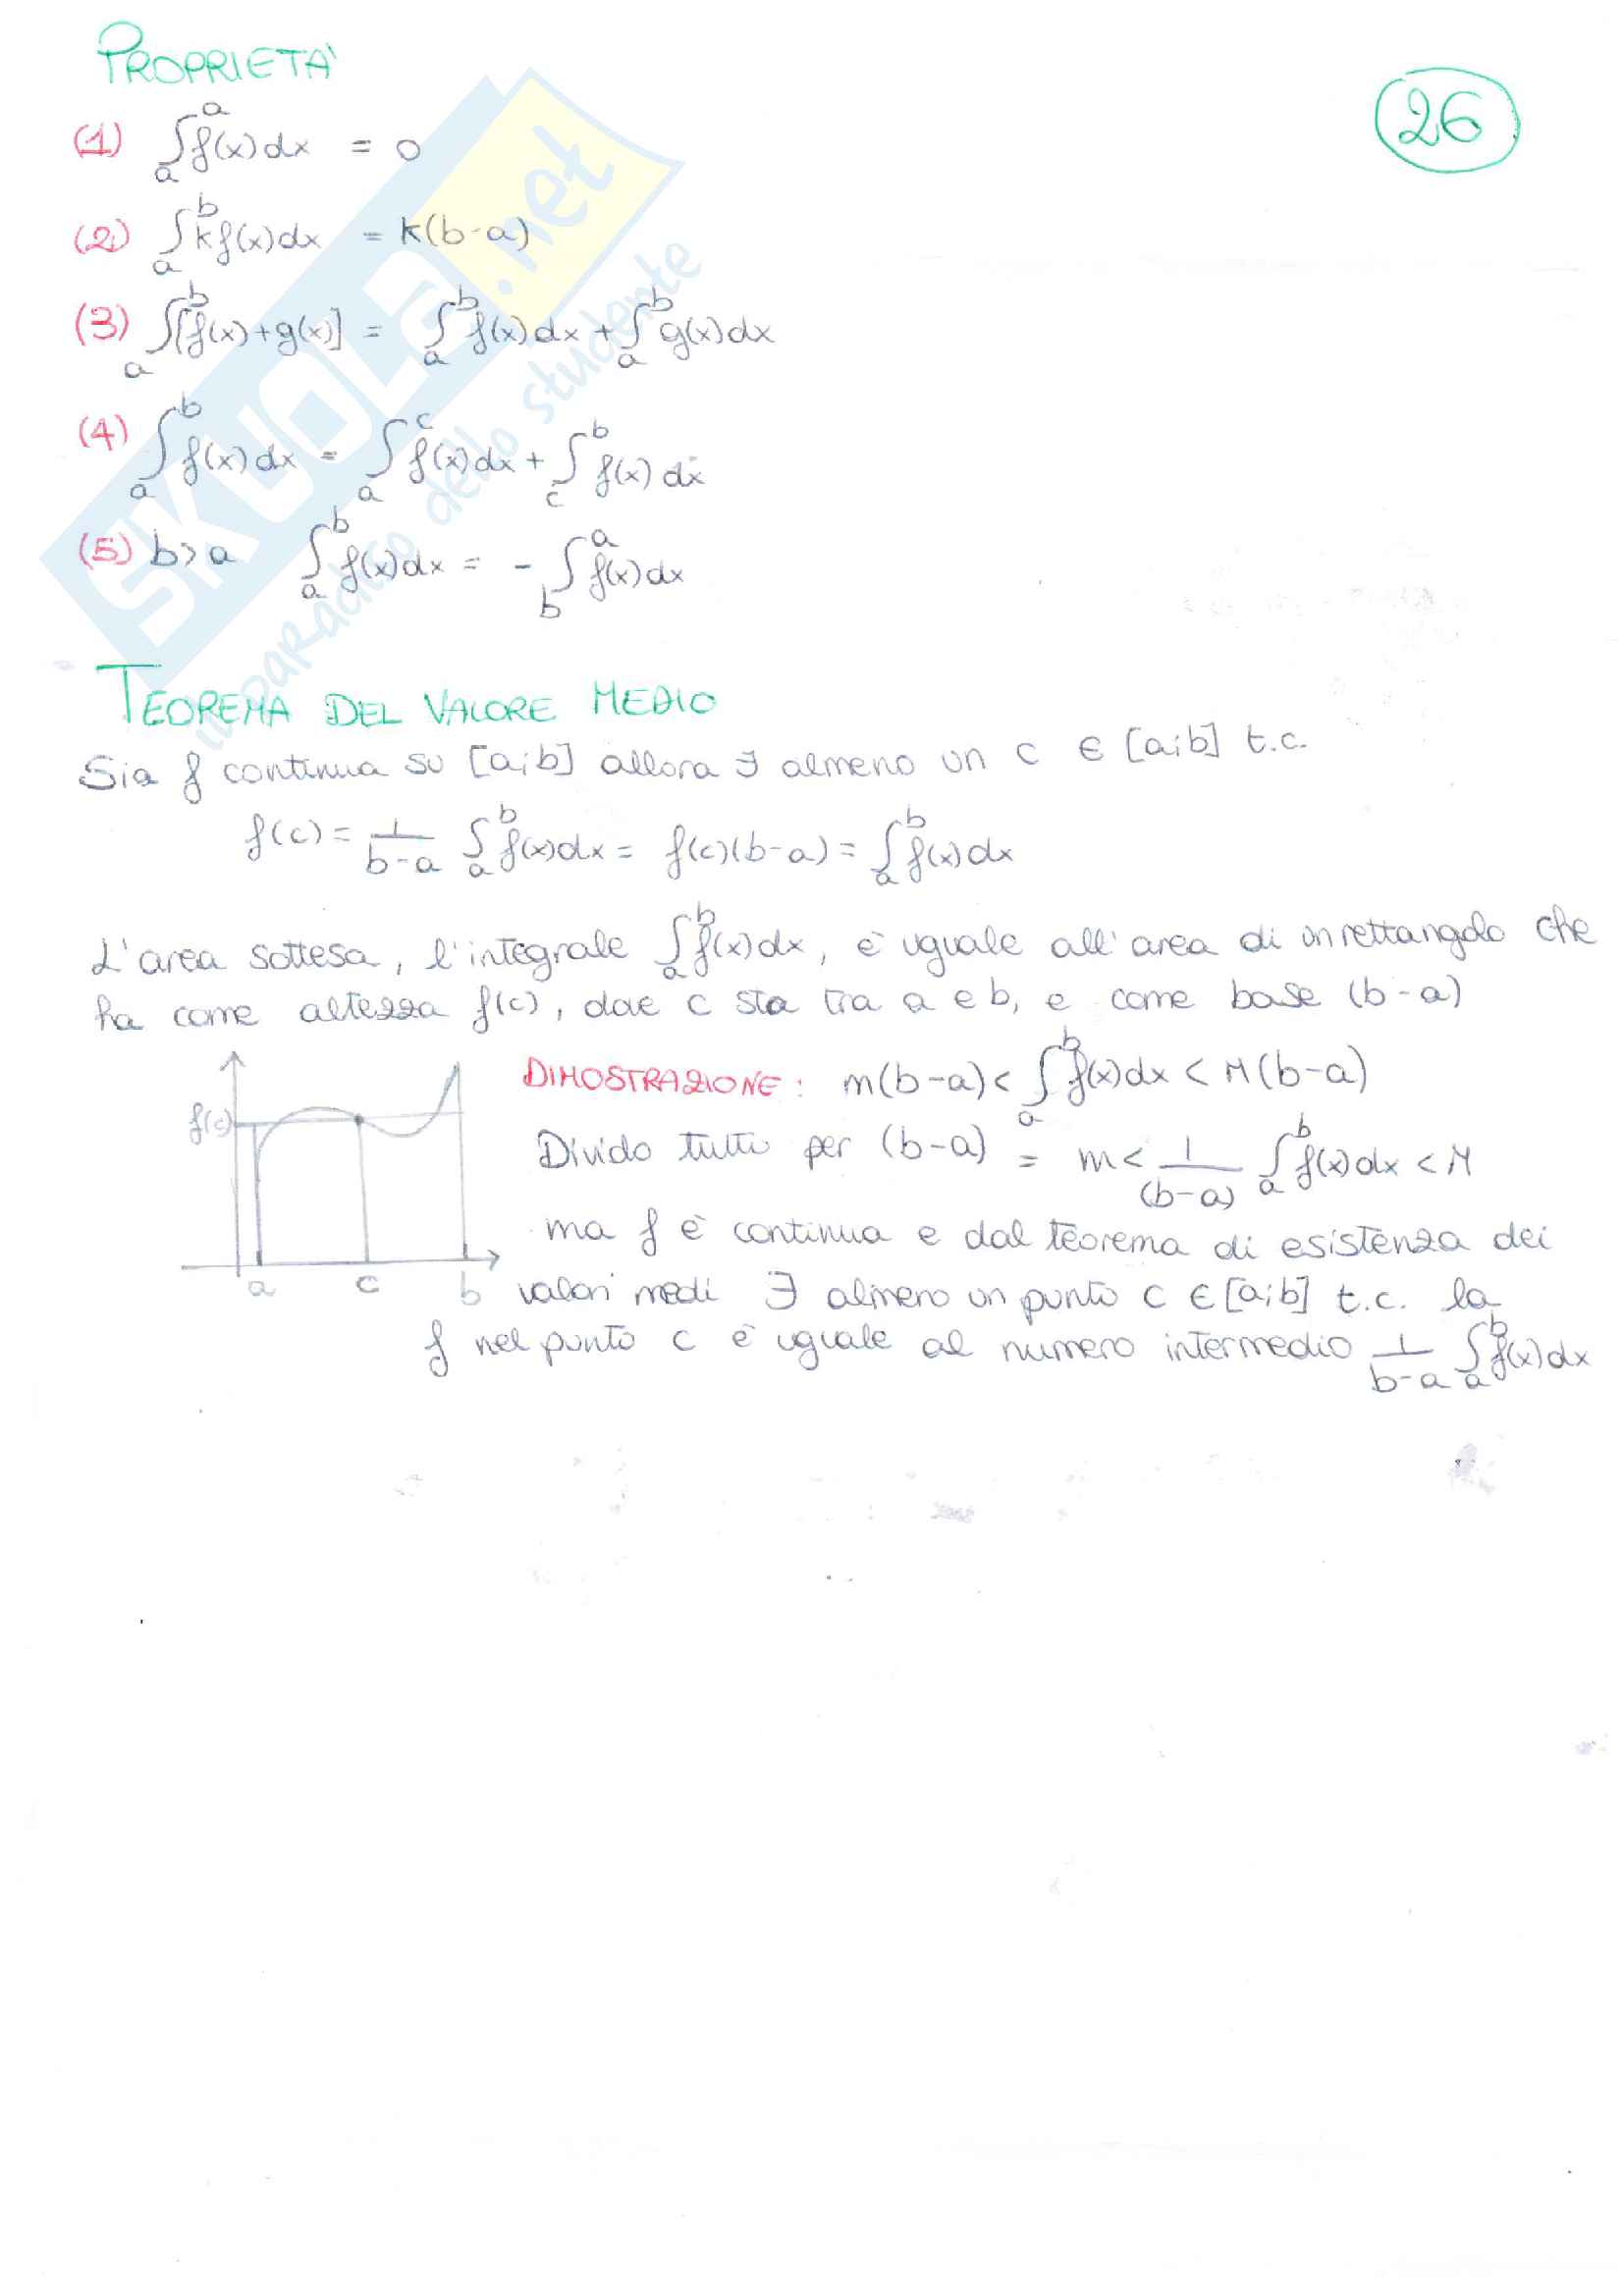 PROPRIETA'
26
(1) ∫_a^a f(x)dx = 0
(2) ∫_a^b kf(x)dx = k(b-a)
(3) ∫_a^b [f(x)+g(x)] = ∫_a^b f(x)dx + ∫_a^b g(x)dx
(4) ∫_a^b f(x)dx = ∫_a^c f(x)dx + ∫_c^b f(x)dx
(5) b>a ∫_a^b f(x)dx = - ∫_b^a f(x)dx
SKUOLA.net
il paradiso dello studente
TEOREMA DEL VALORE MEDIO
Sia f continua su [a;b] allora ∃ almeno un c ∈ [a;b] t.c.
f(c) = 1/(b-a) ∫_a^b f(x)dx = f(c)(b-a) = ∫_a^b f(x)dx
L'area sottesa, l'integrale ∫_a^b f(x)dx, è uguale all'area di un rettangolo che
ha come altezza f(c), dove c sta tra a e b, e come base (b-a)
f(c)
a c b
DIMOSTRAZIONE: m(b-a) < ∫_a^b f(x)dx < M(b-a)
Divido tutto per (b-a) = m < 1/(b-a) ∫_a^b f(x)dx < M
ma f è continua e dal teorema di esistenza dei
valori medi ∃ almeno un punto c ∈ [a;b] t.c. la
f nel punto c è uguale al numero intermedio 1/(b-a) ∫_a^b f(x)dx